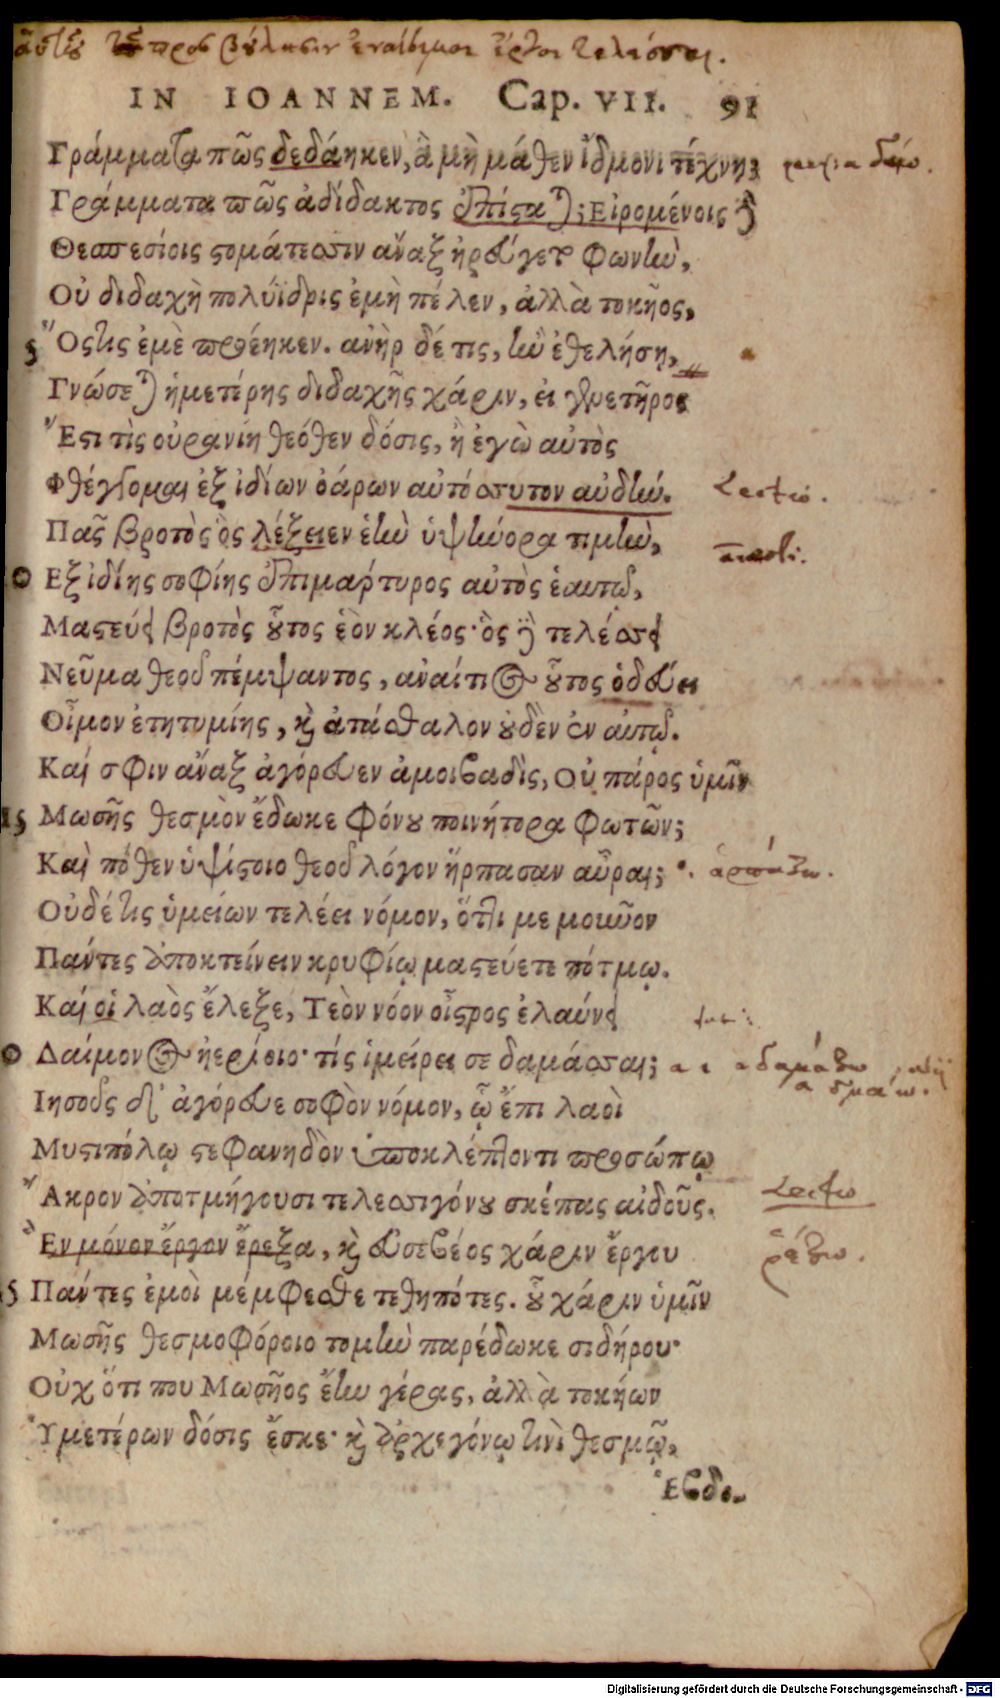 IN IOANNEM. Cap. VII. 91
Γράμματα πῶς δεδάηκεν, ἃ μὴ μάθεν ἴδμονι τέχνῃ;
Γράμματα πῶς ἀδίδακτος ἐπίσταται; Εἰρομένοις δὲ
Θεσπεσίοις στομάτεσσιν ἄναξ ἠρεύγετο φωνὴν,
Οὐ διδαχὴ πολύϊδρις ἐμὴ πέλεν, ἀλλὰ τοκῆος,
5 Ὅστις ἐμὲ προέηκεν. ἀνὴρ δέ τις, ἢν ἐθελήσῃ,
Γνώσεται ἡμετέρης διδαχῆς χάριν, εἰ γενετῆρος
Ἔστι τὶς οὐρανίη θεόθεν δόσις, ἢ ἐγὼ αὐτὸς
Φθέγγομαι ἐξ ἰδίων ὀάρων αὐτόσσυτον αὐδήν.
Lectio.
Πᾶς βροτὸς ὃς λέξειεν ἑὴν ὑψήνορα τιμὴν,
Ἐξ ἰδίης σοφίης ἐπιμάρτυρος αὐτὸς ἑαυτῷ,
Μαστεύει βροτὸς οὗτος ἑὸν κλέος· ὃς δὲ τελέσσει
Νεῦμα θεοῦ πέμψαντος, ἀναίτιος οὗτος ὁδεύει
Οἶμον ἐτητυμίης, καὶ ἀτάσθαλον οὐδὲν ἐν αὐτῷ.
Καί σφιν ἄναξ ἀγόρευεν ἀμοιβαδὶς, Οὐ πάρος ὑμῖν
15 Μωσῆς θεσμὸν ἔδωκε φόνου ποινήτορα φωτῶν;
Καὶ πόθεν ὑψίστοιο θεοῦ λόγον ἥρπασαν αὖραι;
ἁρπάζω.
Οὐδέ τις ὑμείων τελέει νόμον, ὅττι με μοῦνον
Πάντες ἀποκτείνειν κρυφίῳ μαστεύετε πότμῳ.
Καί οἱ λαὸς ἔλεξε, Τεὸν νόον οἶστρος ἐλαύνει
Δαίμονος ἠερίοιο· τίς ἱμείρει σε δαμάσσαι;
Ἰησοῦς δ' ἀγόρευε σοφὸν νόμον, ᾧ ἔπι λαοὶ
Μυστιπόλῳ στεφανηδὸν ὑποκλέπτοντι προσώπῳ
Ἄκρον ἀποτμήγουσι τελεσσιγόνου σκέπας αἰδοῦς.
Lectio
Ἓν μόνον ἔργον ἔρεξα, καὶ εὐσεβέος χάριν ἔργου
ῥέζω.
5 Πάντες ἐμοὶ μέμφεσθε τεθηπότες. οὗ χάριν ὑμῖν
Μωσῆς θεσμοφόροιο τομὴν παρέδωκε σιδήρου·
Οὐχ ὅτι που Μωσῆος ἔην γέρας, ἀλλὰ τοκήων
Ὑμετέρων δόσις ἔσκε· καὶ ἀρχεγόνῳ τινὶ θεσμῷ,
Ἑβδο-
Digitalisierung gefördert durch die Deutsche Forschungsgemeinschaft - DFG